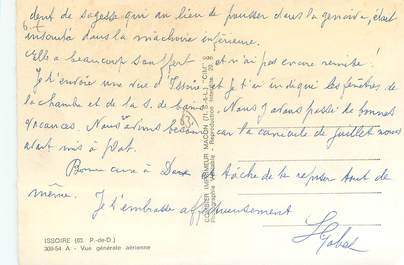 dent de sagesse qui au lieu de pousser dans la gencive, était
incrustée dans la mâchoire inférieure.
Elle a beaucoup souffert et n'ai pas encore remise !
Je t'envoie une vue d'Issoire et je t'ai indiqué les fenêtres de
la chambre et de la S. de bains. Nous y avons passé de bonnes
vacances. Nous en avions besoin car la canicule de juillet nous
avait mis à plat.
Bonne cure à Dax et tâche de te reposer tout de
même. Je t'embrasse affectueusement
COMBIER IMPRIMEUR MACON (71. S.-&-L.) "CIM"
ISSOIRE (63. P.-de-D.)
309-54 A - Vue générale aérienne